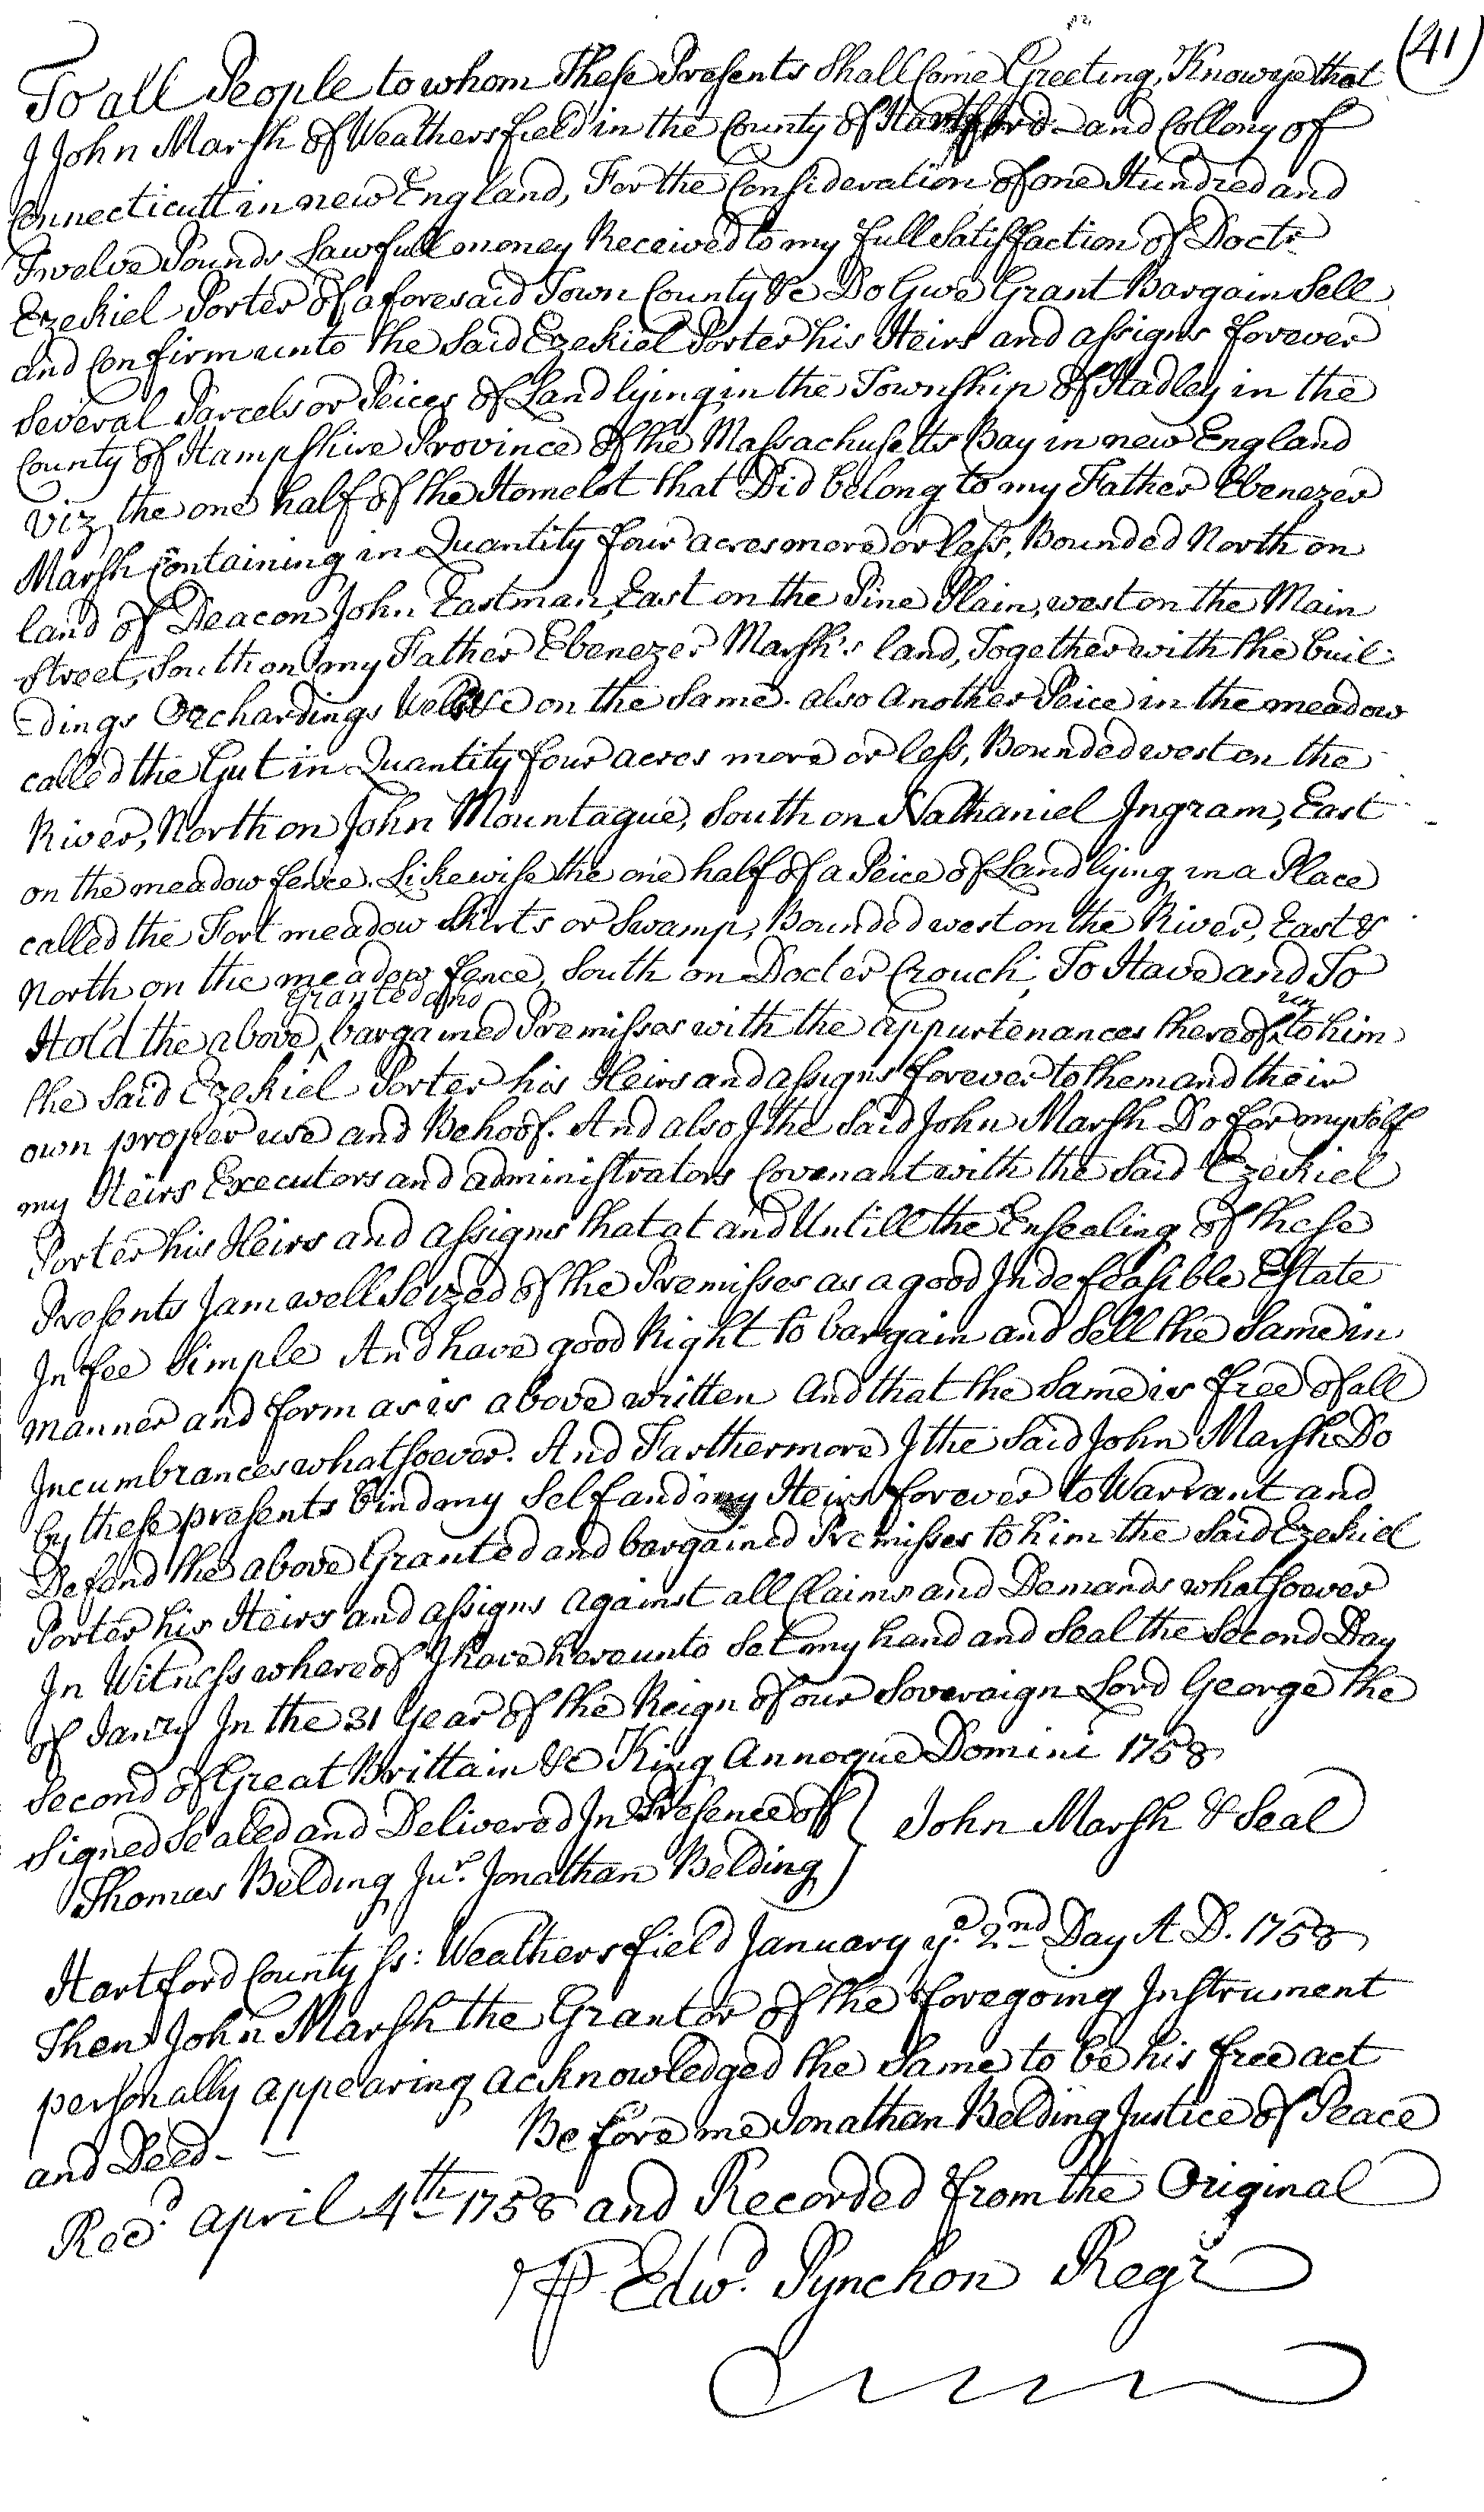 (41)
To all People to whom These Presents Shall Come Greeting, Know ye that
I John Marsh of Weathersfield in the County of Hartford - and Collony of
Connecticutt in new England, For the Consideration of one Hundred and
Twelve Pounds Lawfull money Received to my full Satisfaction of Doctr
Ezekiel Porter of aforesaid Town County &c Do Give Grant Bargain Sell
and Confirm unto the Said Ezekiel Porter his Heirs and assigns forever
Several Parcels or Peices of Land lying in the Township of Hadley in the
County of Hampshire Province of the Massachusetts Bay in new England
Viz the one half of the Homelot that Did belong to my Father Ebenezer
Marsh Containing in Quantity four acres more or less, Bounded North on
land of Deacon John Eastman, East on the Pine Plain, west on the Main
Street, South on my Father Ebenezer Marsh's land, Together with the buil-
-dings Orchardings Well &c on the Same. also Another Peice in the meadow
called the Gut in Quantity four acres more or less, Bounded west on the
River, North on John Mountague, South on Nathaniel Ingram, East
on the meadow fence. Likewise the one half of a Peice of Land lying in a Place
called the Fort meadow Skirts or Swamp, Bounded west on the River, East &
North on the meadow fence, South on Docter Crouch, To Have and To
Hold the above granted and bargained Premisses with the appurtenances thereof to him
the Said Ezekiel Porter his Heirs and assigns forever to them and their
own proper use and Behoof. And also I the Said John Marsh Do for my Self
my Heirs Executors and administrators Covenant with the Said Ezekiel
Porter his Heirs and assigns that at and Untill the Ensealing of these
Presents I am well Seized of the Premisses as a good Indefeasible Estate
In fee Simple And have good Right to bargain and Sell the Same in
manner and form as is above written And that the Same is free of all
Incumbrances whatsoever. And Farthermore I the Said John Marsh Do
by these presents bind my Self and my Heirs forever to Warrant and
Defend the above Granted and bargained Premisses to him the Said Ezekiel
Porter his Heirs and assigns against all Claims and Demands whatsoever
In Witness whereof I have hereunto Set my hand and Seal the Second Day
of Janry In the 31 Year of the Reign of our Soveraign Lord George the
Second of Great Brittain &c King Annoque Domini 1758
Signed Sealed and Delivered In Presence off } John Marsh & Seal
Thomas Belding Jur. Jonathan Belding
Hartford County ss: Weathersfield January ye. 2nd Day A D. 1758
Then John Marsh the Grantor of the foregoing Instrument
personally appearing acknowledged the Same to be his free act
and Deed - - Before me Jonathan Belding Justice of Peace
Recd. april 4th 1758 and Recorded from the Original
P Edwd. Pynchon Regr